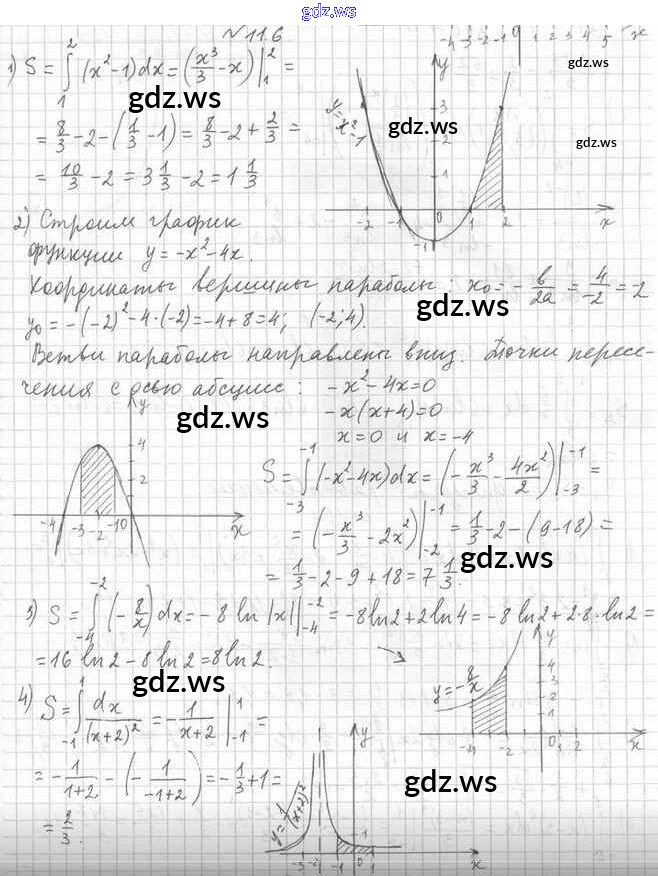 gdz.ws
№ 11.6
1) S = ∫₁² (x² − 1)dx = (x³/3 − x) |₁² =
= 8/3 − 2 − (1/3 − 1) = 8/3 − 2 + 2/3 =
= 10/3 − 2 = 3 1/3 − 2 = 1 1/3
-4 -3 -2 -1 0 1 2 3 4 5 x
y
3
2
1
y = x² − 1
-2 -1 0 1 2 x
-1
gdz.ws
gdz.ws
gdz.ws
gdz.ws
2) Строим график
функции y = −x² − 4x.
Координаты вершины параболы: x₀ = − b/2a = 4/−2 = −2
y₀ = −(−2)² − 4·(−2) = −4 + 8 = 4; (−2; 4).
gdz.ws
Ветви параболы направлены вниз. Точки пересе-
чения с осью абсцисс: −x² − 4x = 0
−x(x + 4) = 0
x = 0 и x = −4
gdz.ws
y
4
2
-4 -3 -2 -1 0 x
S = ∫₋₃⁻¹ (−x² − 4x)dx = (−x³/3 − 4x²/2) |₋₃⁻¹ =
= (−x³/3 − 2x²) |₋₂⁻¹ = 1/3 − 2 − (9 − 18) =
= 1/3 − 2 − 9 + 18 = 7 1/3.
gdz.ws
3) S = ∫₋₄⁻² (−8/x) dx = −8 ln |x| |₋₄⁻² = −8ln2 + 2ln4 = −8ln2 + 2·8·ln2 =
= 16 ln2 − 8 ln2 = 8 ln2.
gdz.ws
y
4
3
2
1
y = −8/x
-4 -2 1 2 x
4) S = ∫₋₁¹ dx/(x+2)² = − 1/(x+2) |₋₁¹ =
= − 1/(1+2) − (− 1/(−1+2)) = −1/3 + 1 =
= 2/3.
gdz.ws
y
y = 1/(x+2)²
1
-3 -2 -1 1 x